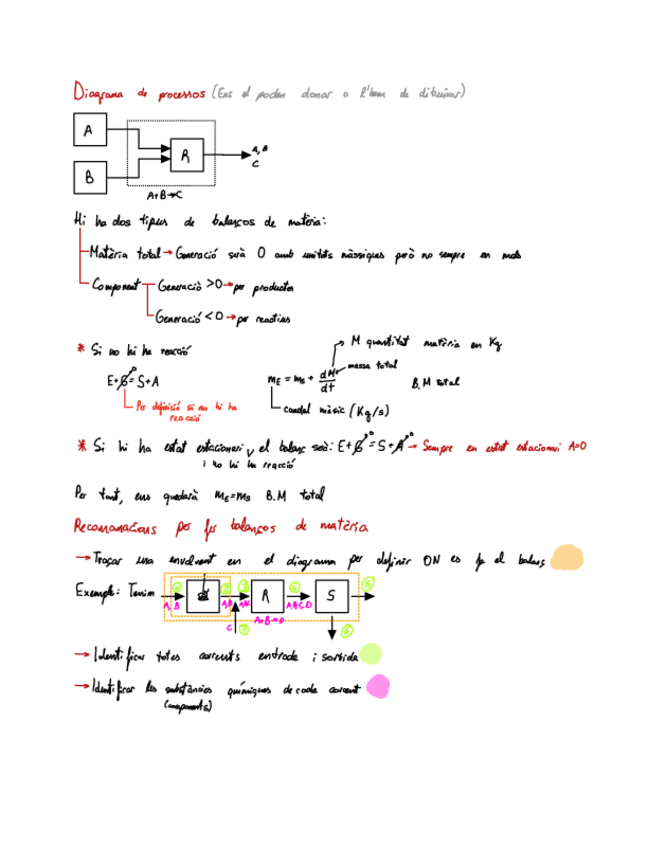 Diagrama de processos (Ens el poden donar o l'hem de dibuixar)
A
B
R
A, B
C
A+B→C
Hi ha dos tipus de balanços de matèria:
Matèria total → Generació serà 0 amb unitats màssiques però no sempre en mols
Component
Generació >0 → per productes
Generació <0 → per reactius
* Si no hi ha reacció
M quantitat matèria en Kg
massa total
E+G=S+A
0
mE = ms + dMT/dt
B.M total
Per definició si no hi ha reacció
caudal màssic (Kg/s)
* Si hi ha estat estacionari, el balanç serà: E+G=S+A → Sempre en estat estacionari A=0
0
0
i no hi ha reacció
Per tant, ens quedarà mE=ms B.M total
Recomanacions per fer balanços de matèria
→ Traçar una envolvent en el diagrama per definir ON es fa el balanç
Exemple: Tenim
1
2
3
4
5
R
S
A, B
A,B
A,B,C,D
A+B→D
C
7
6
→ Identificar totes corrents entrada i sortida
→ Identificar les substàncies químiques de cada corrent
(components)